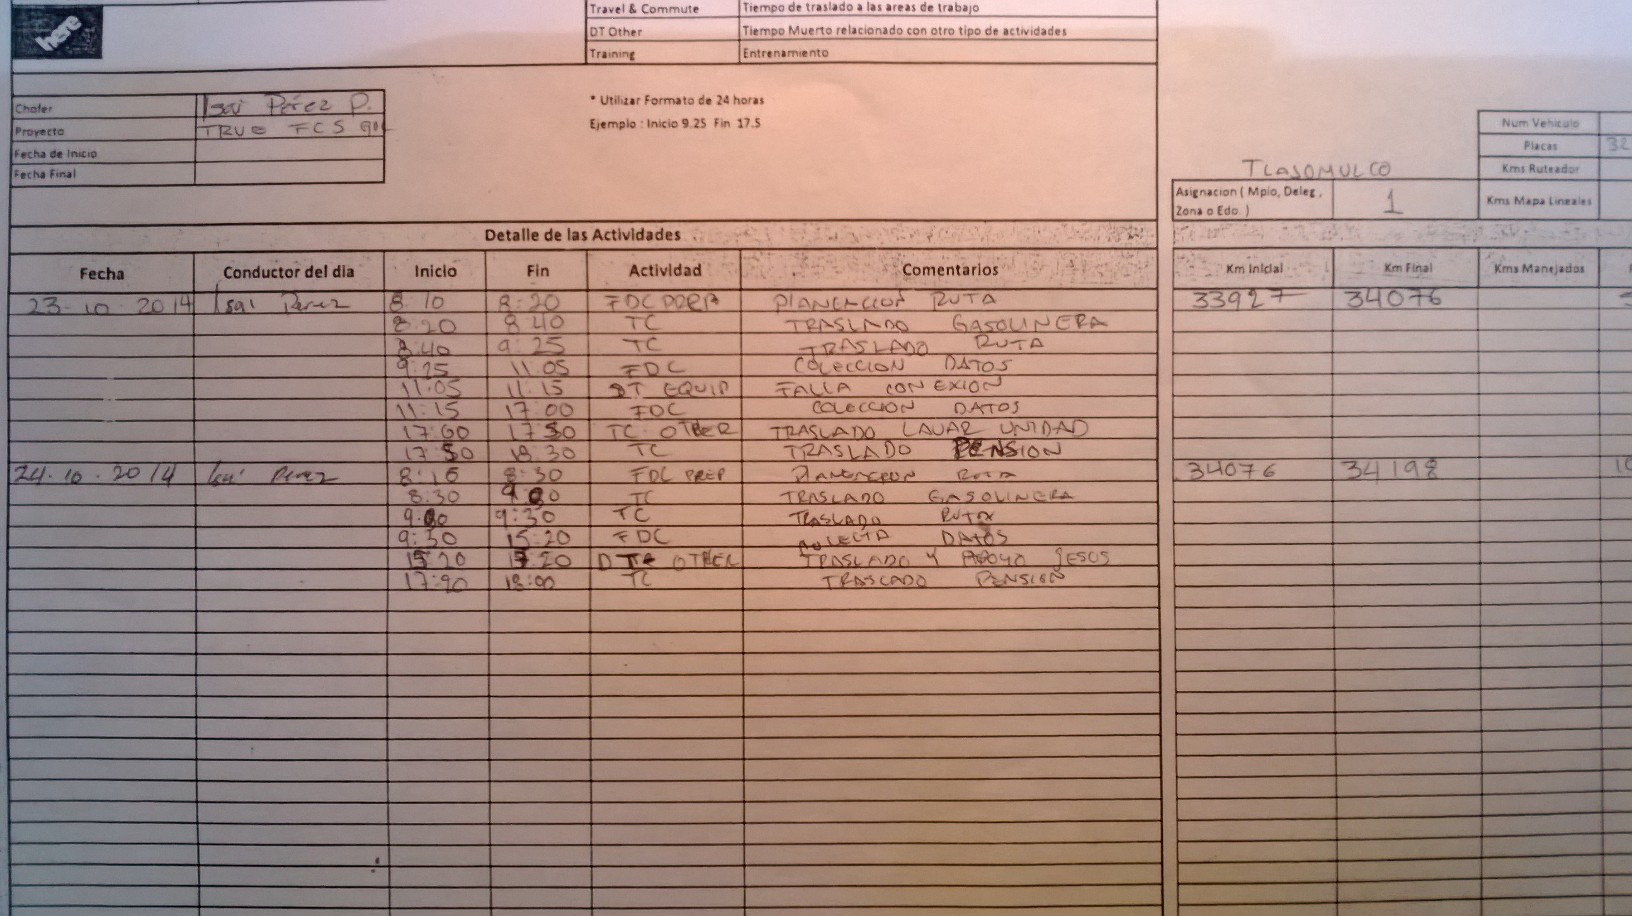 here
Travel & Commute Tiempo de traslado a las areas de trabajo
DT Other Tiempo Muerto relacionado con otro tipo de actividades
Training Entrenamiento
Chofer Isai Pérez P.
Proyecto TRUE FCS
Fecha de Inicio
Fecha Final
* Utilizar Formato de 24 horas
Ejemplo : Inicio 9.25 Fin 17.5
Num Vehiculo
Placas 32
Kms Ruteador
Kms Mapa Lineales
TLASOMULCO
Asignacion ( Mpio, Deleg, Zona o Edo ) 1
Detalle de las Actividades
Fecha Conductor del dia Inicio Fin Actividad Comentarios Km Inicial Km Final Kms Manejados
23-10-2014 Isai Perez 8:10 8:20 FDC PREP PLANEACION RUTA 33927 34076
8:20 8:40 TC TRASLADO GASOLINERA
8:40 9:25 TC TRASLADO RUTA
9:25 11:05 FDC COLECCION DATOS
11:05 11:15 DT EQUIP FALLA CONEXION
11:15 17:00 FDC COLECCION DATOS
17:00 17:50 TC OTHER TRASLADO LAVAR UNIDAD
17:50 18:30 TC TRASLADO PENSION
24-10-2014 Isai Perez 8:15 8:30 FDC PREP PLANEACION RUTA 34076 34198
8:30 9:00 TC TRASLADO GASOLINERA
9:00 9:30 TC TRASLADO RUTA
9:30 15:20 FDC COLECTA DATOS
15:20 17:20 OTHER TRASLADO Y APOYO JESUS
18:00 TC TRASCADO PENSION